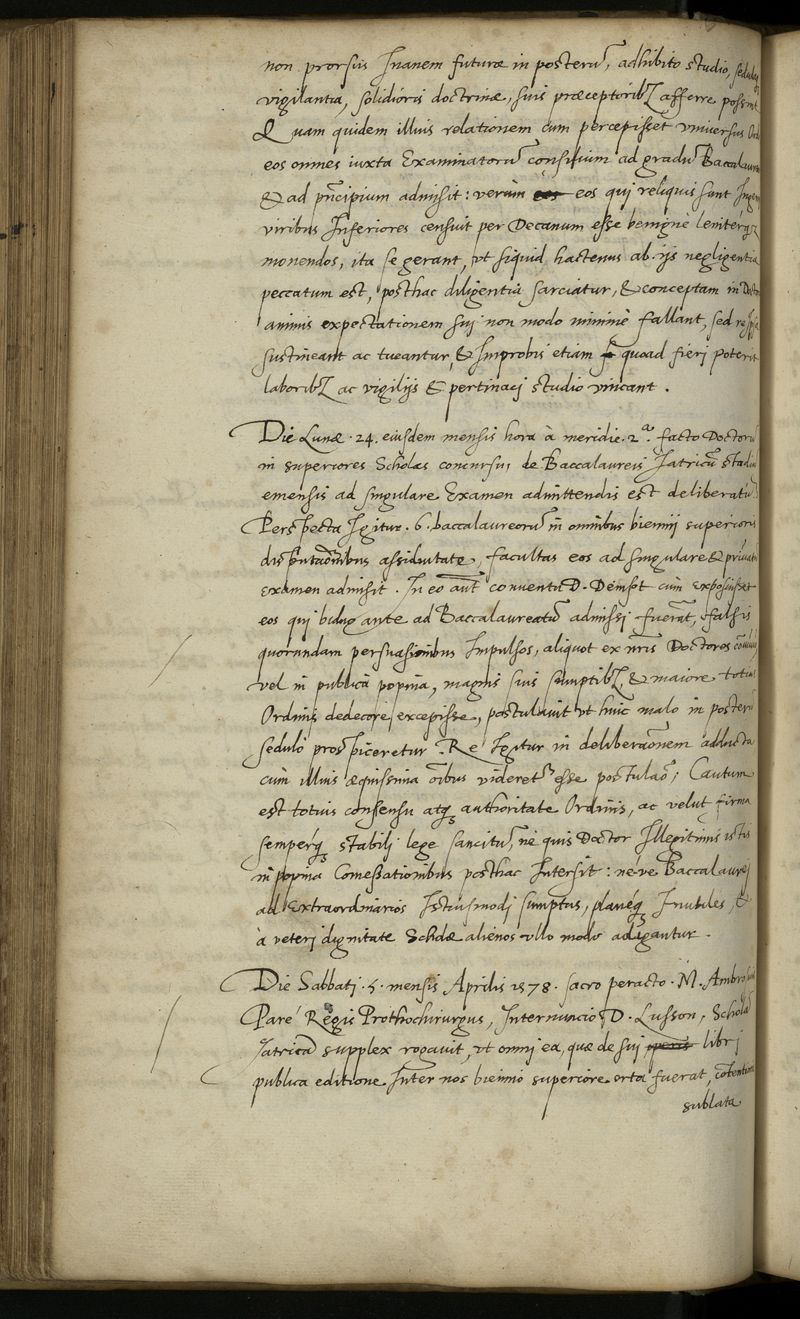 non prorsus Inanem futuræ in posterū, adhibito studio, sedula
vigilantia, solidioris doctrinæ, suis præceptoribȝ afferre possint
Quam quidem illius relationem cum percepisset vniuersus Ord
eos omnes iuxta Examinatorū consilium ad gradū Baccalaure
& ad pn̄cipium admisit: verùm eos eos qui reliquis sunt Ingen
viribus Inferiores censuit per Decanum esse benignè leniterq́ȝ
monendos, ita se gerant, vt siquid hactenus ab ijs negligentia
peccatum est, posthac diligentia sarciatur, & conceptam in Docto
animis expectationem sui non modo minimè fallant, sed re ipsa
sustineant ac tueantur, & Improbis etiam quoad fieri poterit
laboribȝ ac vigilijs & pertinaci studio vincant.
Die Lunæ .24. eiusdem mensis hora à meridie .2ᵃ. facto Doctorū
in superiores Scholas concursu, de Baccalaureis Iatricū stadiū
emensis ad singulare Examen admittendis est deliberatū
Perspecta Igitur .6. baccalaureorū in omnibus biennij superioris
disputaōnibus assiduitate, facultas eos ad singulare & priuatū
examen admisit. In eo aut̄ conuentu D. cum exposuisset
eos qui biduo ante ad Baccalaureatū admissi fuerāt, falsis
quorundam persuasionibus Impulsos, aliquot ex nr̄is Doctores
vel in publica popina, magnis suis sumptibȝ & maiore totius
Ordinis dedecore excepisse, postulauit vt huic malo in posterū
sedulò prospiceretur. Re Igitur in deliberaōnem adducta
cùm illius æquissima oībus videretʳ esse postulaō; Cautum
est totius consensu atqȝ authoritate Ordinis, ac velut firma
semperq́ȝ stabili lege sancitū, ne quis Doctor Illegitimis istis
in popina Comessationibus posthac Intersit: néve Baccalaurej
ad Extraordinarios Istiusmodi sumptus, planéqȝ Inutiles, &
à veteri dignitate Scholæ alienos vllo modo adigantur.
Die Sabbati .5. mensis Aprilis 1578. sacro peracto. M. Ambrosius
Paré Regis Prothochirurgus, Internuncio D. Lusson, Scholā
Iatricā supplex rogauit, vt omni ea, quæ de sui operis libri
publica editione Inter nos biennio superiore orta fuerat, cōtentione
sublata